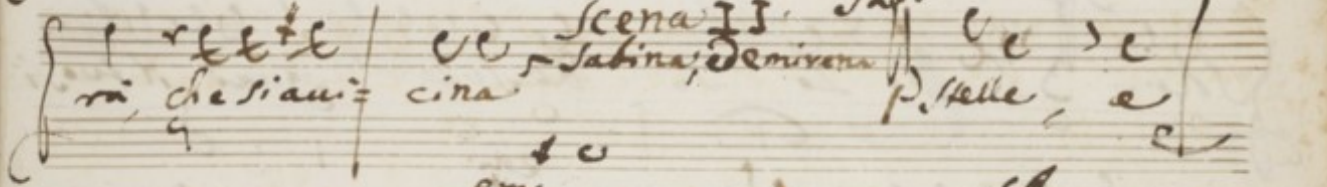 Scena II.
Sabina, e Demirena
rà, che si avvi= cina
P. Stelle, e